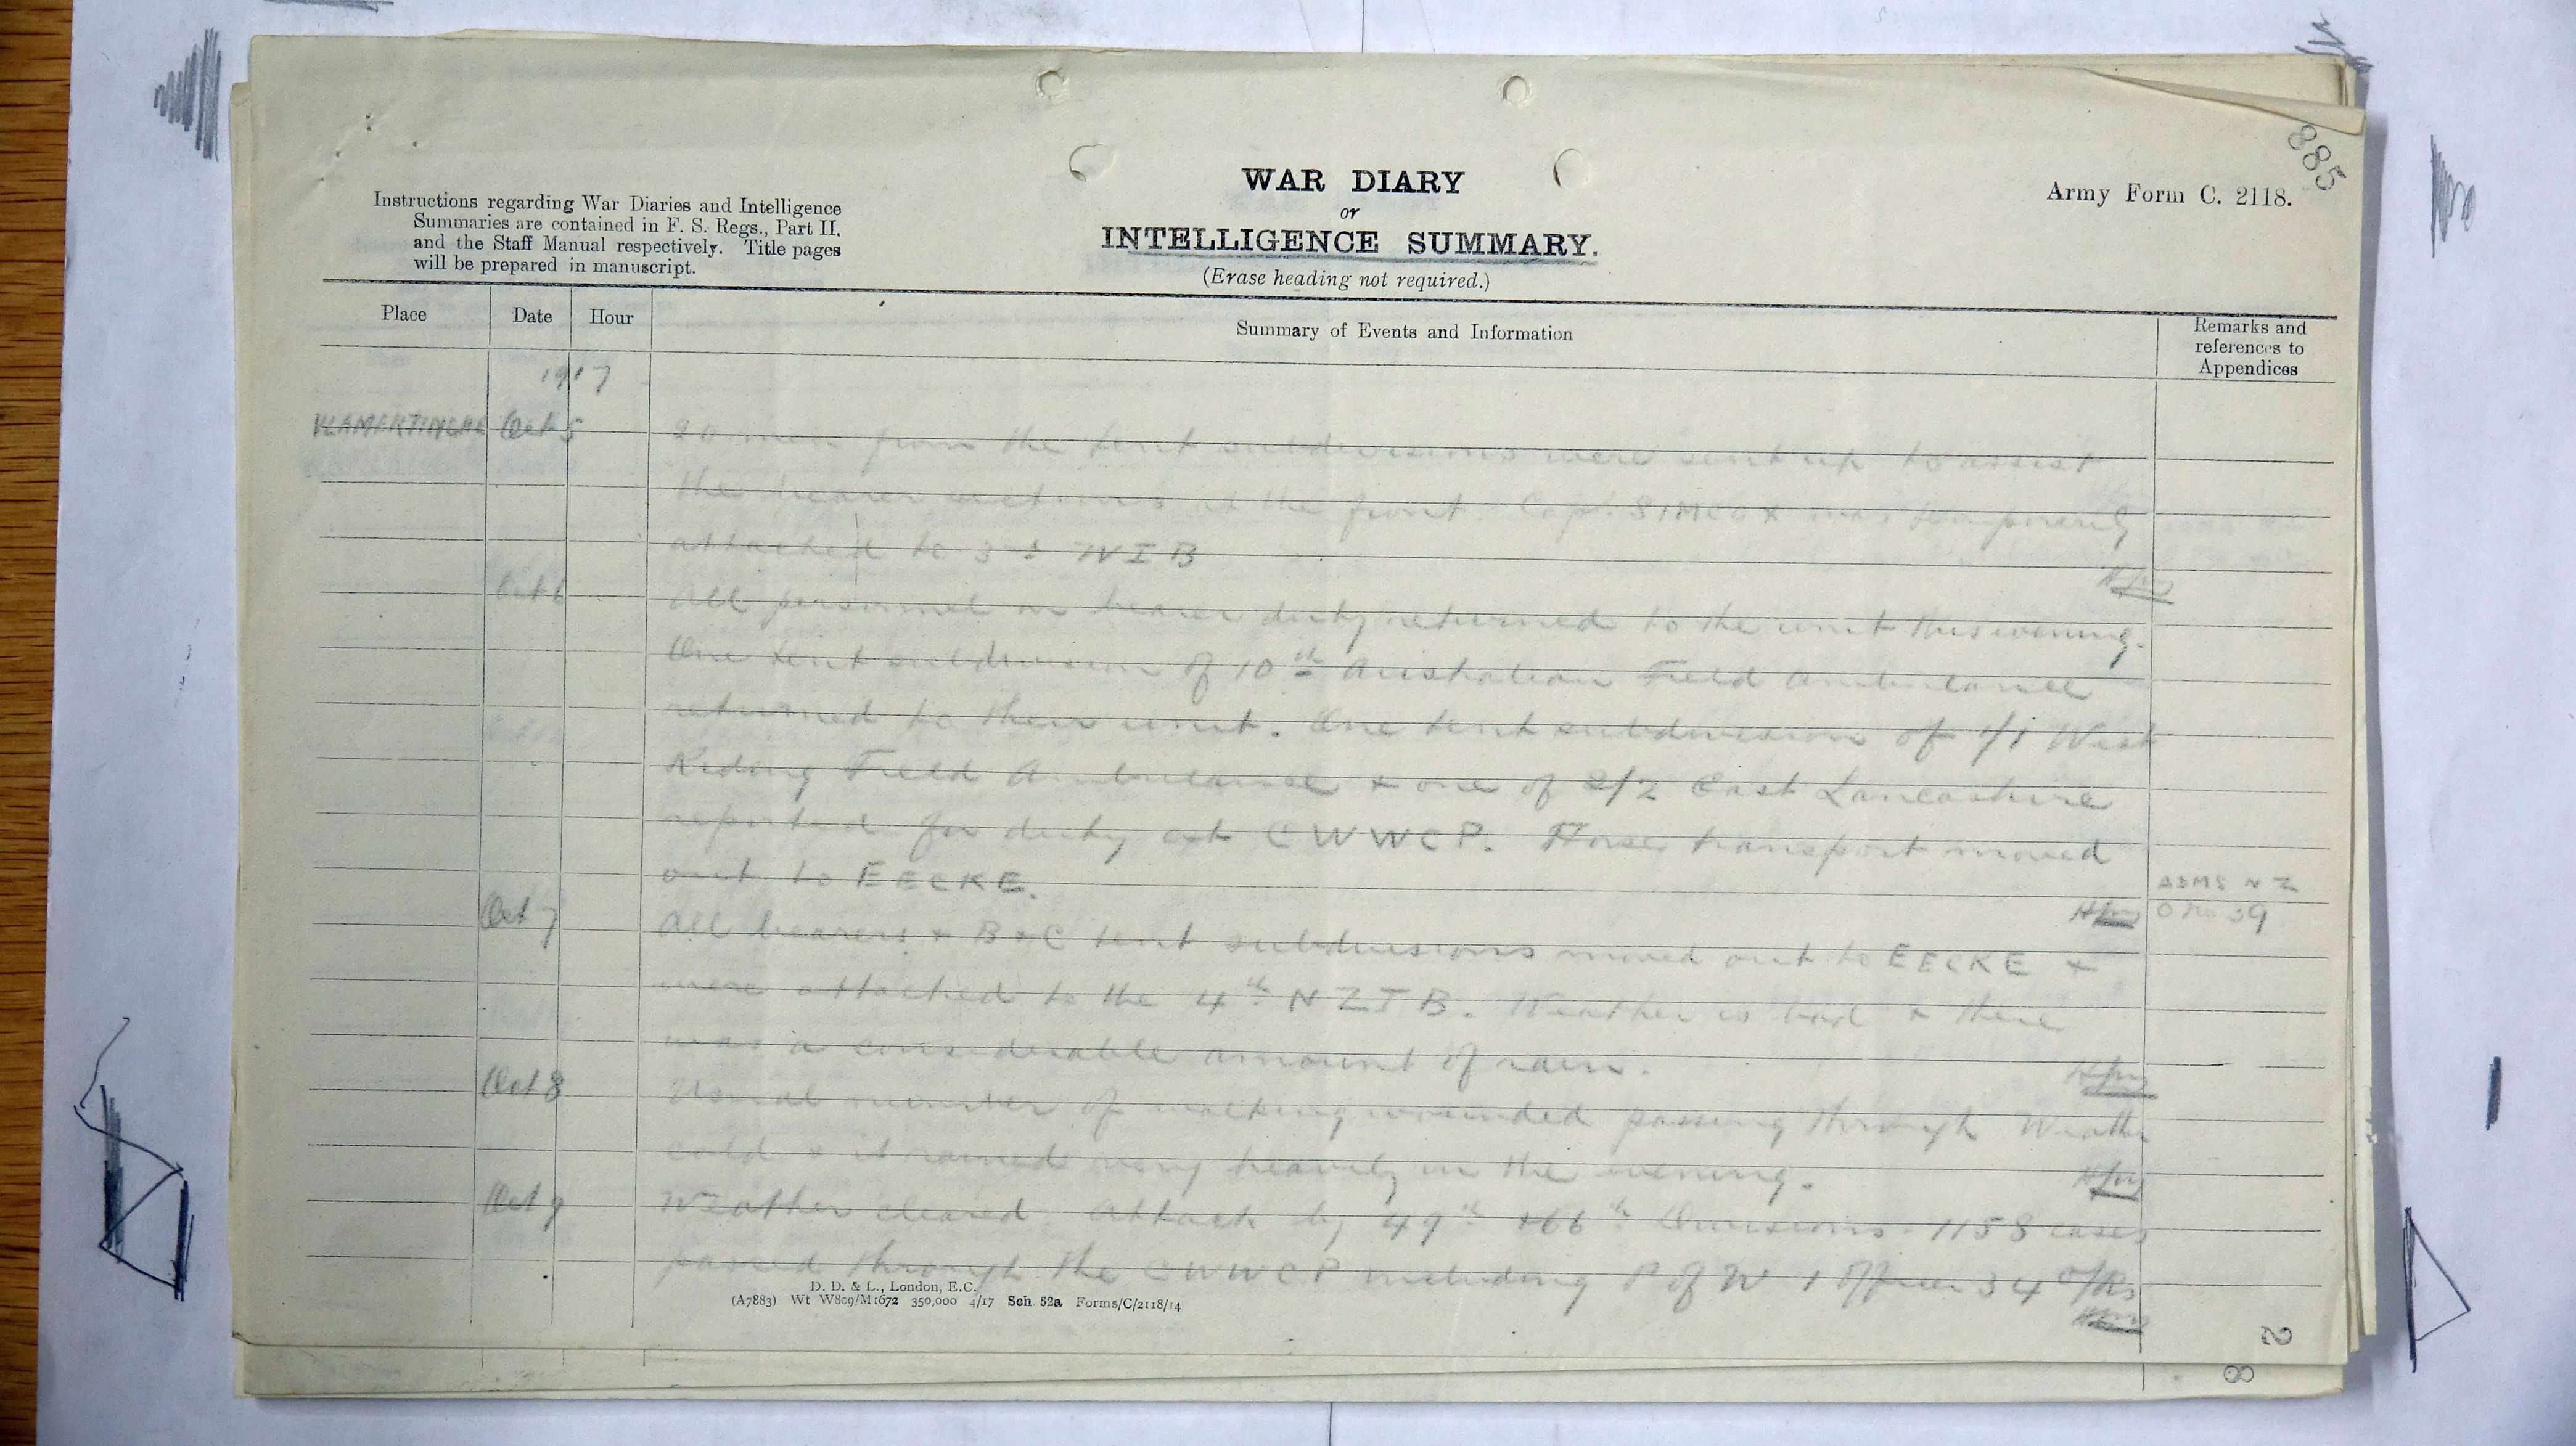 885
Army Form C. 2118.
WAR DIARY
or
INTELLIGENCE SUMMARY.
(Erase heading not required.)
Instructions regarding War Diaries and Intelligence
Summaries are contained in F. S. Regs., Part II,
and the Staff Manual respectively. Title pages
will be prepared in manuscript.
Place Date Hour Summary of Events and Information Remarks and
references to
Appendices
1917
VLAMERTINGHE Oct 5 20 men from the tent subdivisions were sent up to assist
the bearer sections at the front. Capt. SIMCOX was temporarily
attached to 3rd IB
Oct 6 All personnel on bearer duty returned to the unit this evening.
One tent subdivision of 10th Australian Field Ambulance
returned to their unit. One tent subdivision of 1/1 West
Riding Field Ambulance + one of 2/2 East Lancashire
reported for duty at CWWCP. Horse transport moved
out to EECKE. ADMS NZ
O No 39
Oct 7 All bearers + B+C tent subdivisions moved out to EECKE +
were attached to the 4th NZIB. Weather is bad + there
was a considerable amount of rain.
Oct 8 Usual number of walking wounded passing through Weather
cold + it rained very heavily in the evening.
Oct 9 Weather cleared. Attack by 49th + 66th Divisions. 1158 cases
passed through the CWWCP including P of W 1 officer 34 O/Rs
D. D. & L., London, E.C.
(A7883) Wt W809/M1672 350,000 4/17 Sch. 52a Forms/C/2118/14
2
8